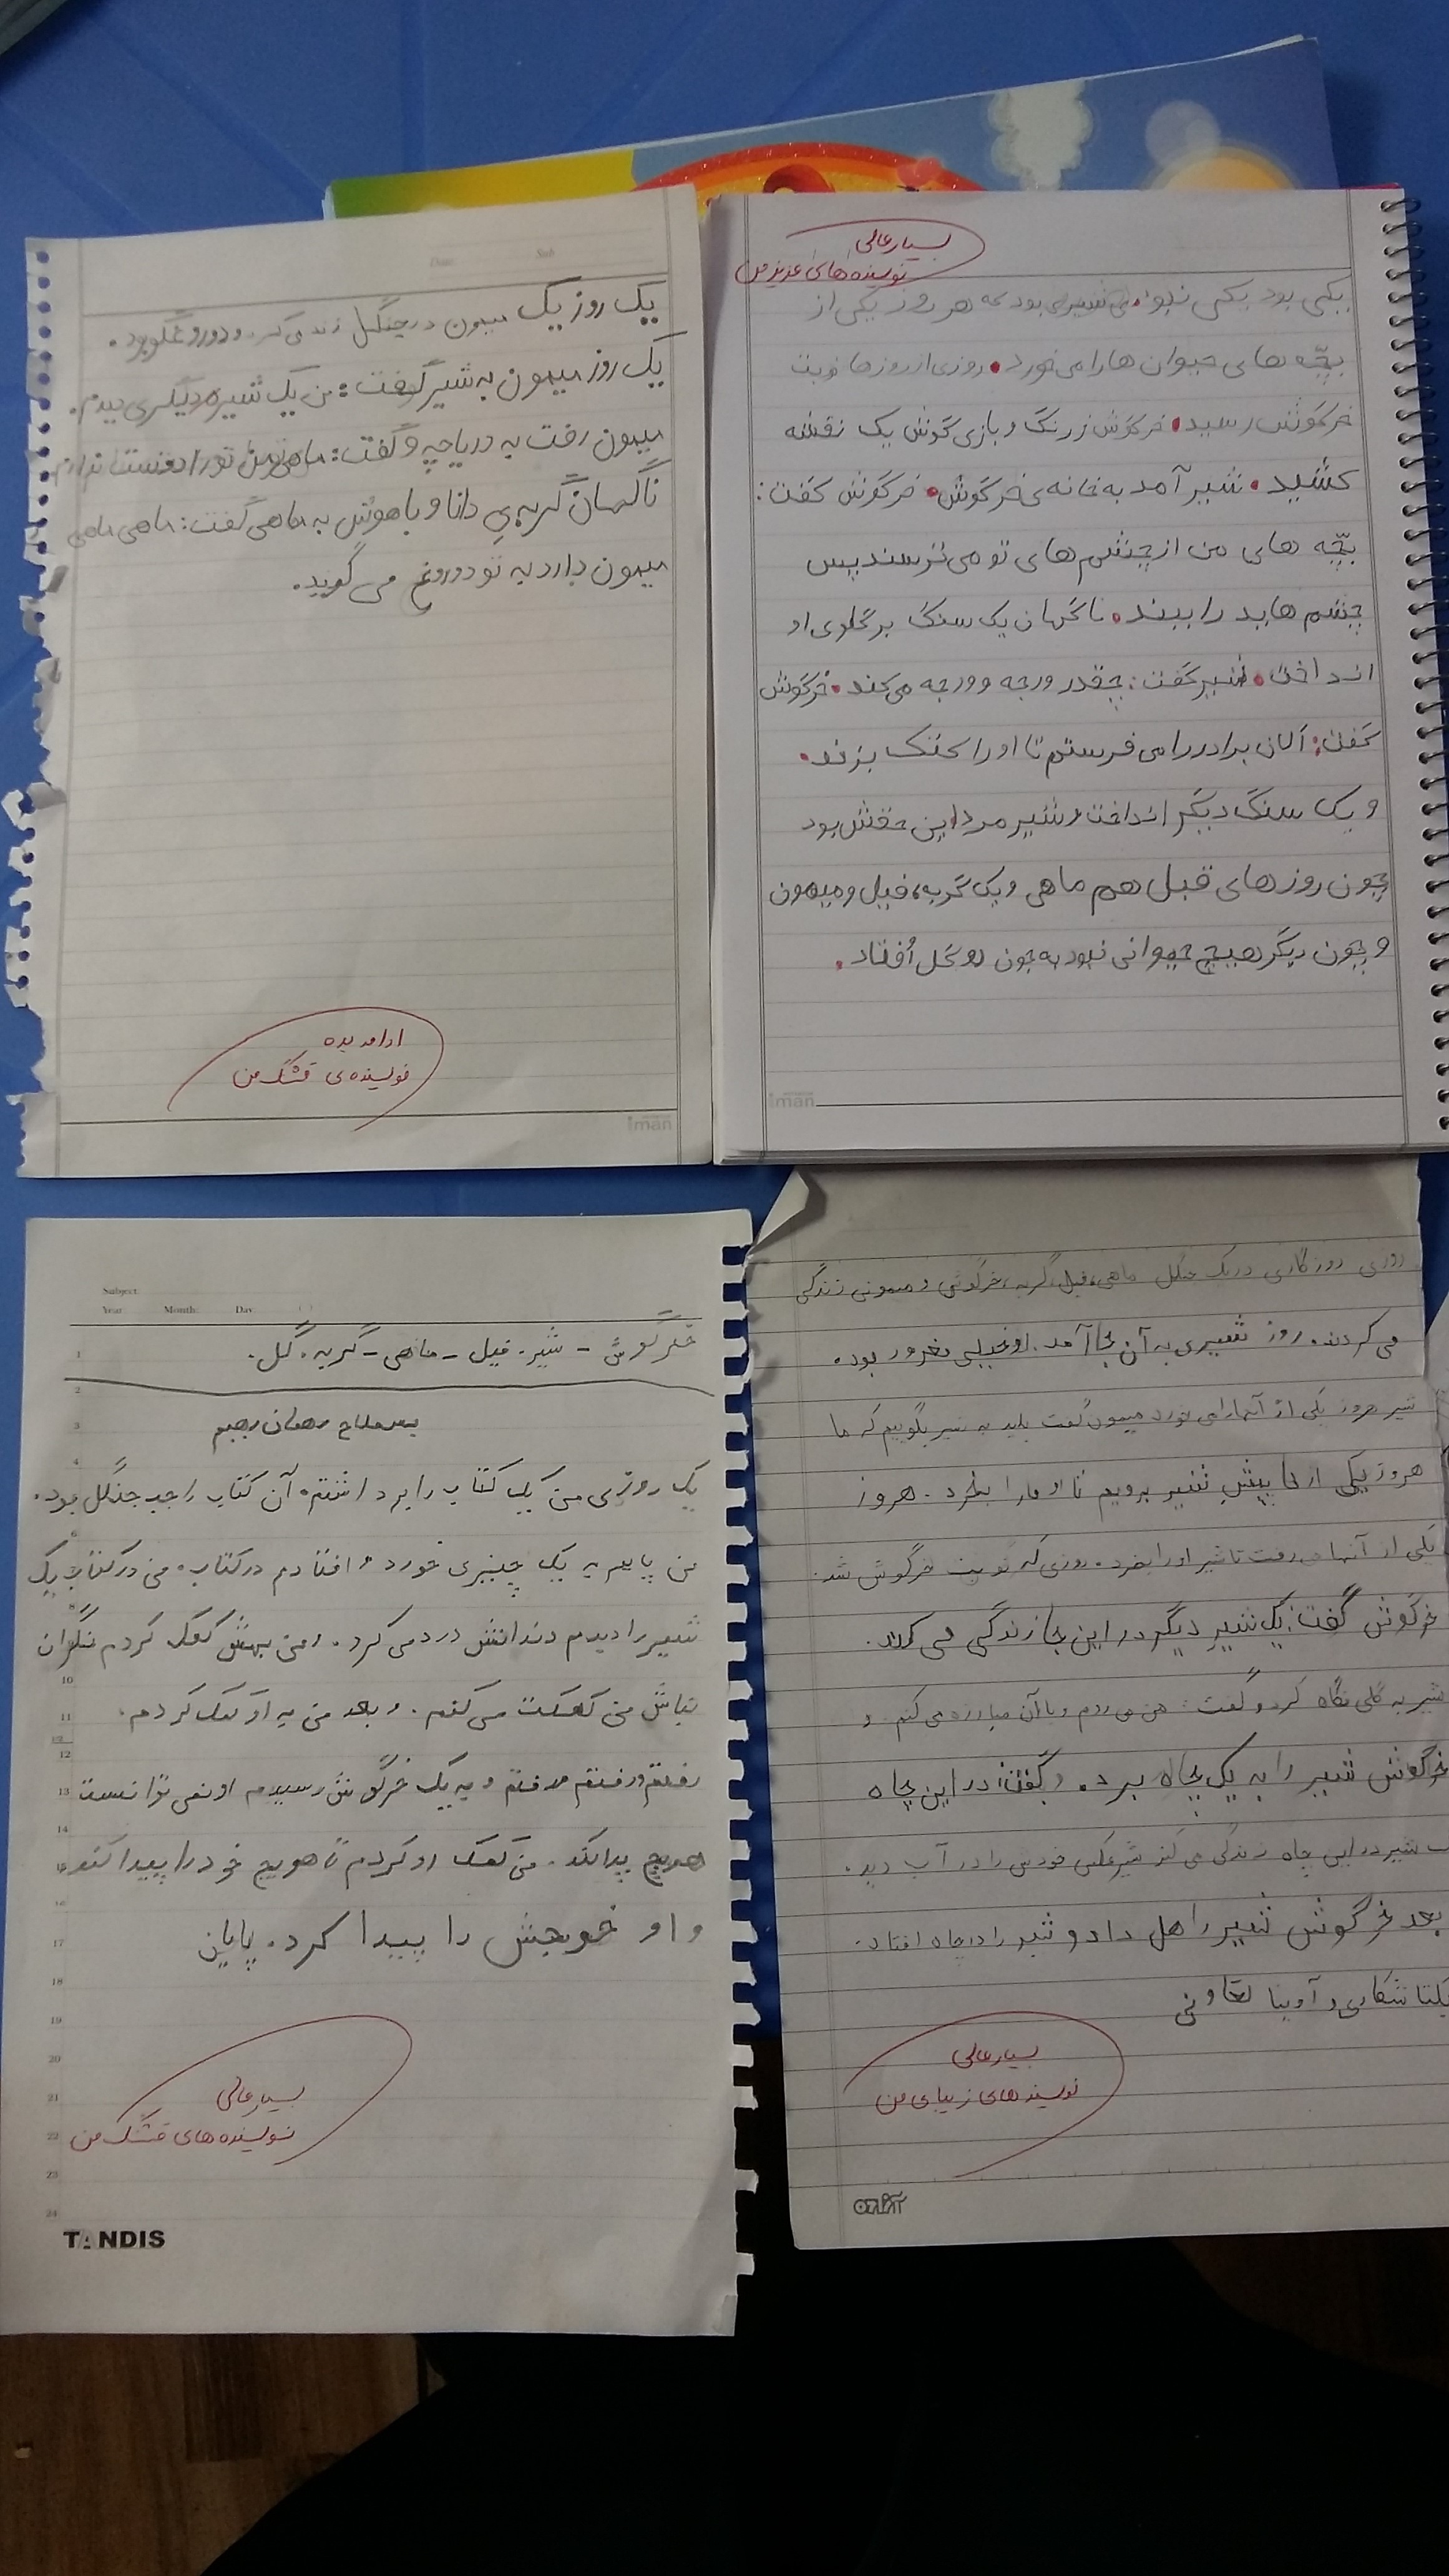 بسیار عالی
نویسنده های عزیز من
یکی بود یکی نبود شیری بود که هر روز یکی از
بچّه های حیوان ها را می خورد. روزی از روزها نوبت
خرگوش رسید. خرگوش زرنگ و بازی گوش یک نقشه
کشید. شیر آمد به خانه ی خرگوش. خرگوش گفت:
بچّه های من از چشم های تو می ترسند پس
چشم هاید را ببند. ناگهان یک سنگ بر گلوی او
انداخت. شیر گفت: چقدر ورجه وورجه می کند. خرگوش
گفت: الان برادر را می فرستم تا او را کتک بزند.
و یک سنگ دیگر انداخت شیر مرد این حقش بود
چون روزهای قبل هم ماهی و یک گربه، فیل و میمون
و چون دیگر هیچ حیوانی نبود به جون گل اُفتاد.
یک روز یک میمون در جنگل زندگی می کرد و دوروغگو بود.
یک روز میمون به شیر گفت: من یک شیره دیگری دیدم.
میمون رفت به دریاچه و گفت: ماهی من تو را دوست ندارم
ناگهان گربه یِ دانا و باهوش به ماهی گفت: ماهی ماهی
میمون دارد به تو دوروغ می گوید.
ادامه بده
نویسنده ی قشنگ من
iman
iman
روزی روزگاری در یک جنگل ماهی، فیل، گربه، خرگوش و میمونی زندگی
می کردند. روز شیری به آن جا آمد. او خیلی مغرور بود.
شیر هروز یکی از آنها را می خورد میمون گفت باید به شیر بگوییم که ما
هروز یکی از ما پیشِ شیر برویم تا او ما را بخرد. هروز
یکی از آنها می رفت تا شیر او را بخرد. روزی که نوبت خرگوش شد.
خرگوش گفت: یک شیر دیگر در این جا زندگی می کند.
شیر به گلی نگاه کرد و گفت: من می روم و با آن مبارزه می کنم. و
خرگوش شیر را به یک چاه برد. و گفت: در این چاه
شیر در این چاه زندگی می کند شیر عکس خودش را در آب دید.
بعد خرگوش شیر را هل داد و شیر را در چاه افتاد.
یلتا شکاری و آوینا تعاونی
بسیار عالی
نویسنده های زیبای من
Subject:
Year: Month: Day: ( )
خرگوش - شیر - فیل - ماهی - گربه - گل.
یک روزی من یک کتاب را برداشتم. آن کتاب راجب جنگل بود.
من پایم به یک چیزی خورد و افتادم در کتاب. من در کتاب یک
شیر را دیدم دندانش درد می کرد. و من بهش کمک کردم نگران
نباش من کمکت می کنم. و بعد من به او کمک کردم.
رفتم و رفتم و رفتم و به یک خرگوش رسیدم او نمی توانست
هویج پیدا کند. من کمک او کردم تا هویج خود را پیدا کند
و او خویجش را پیدا کرد. پایان
بسیار عالی
نویسنده های قشنگ من
TANDIS